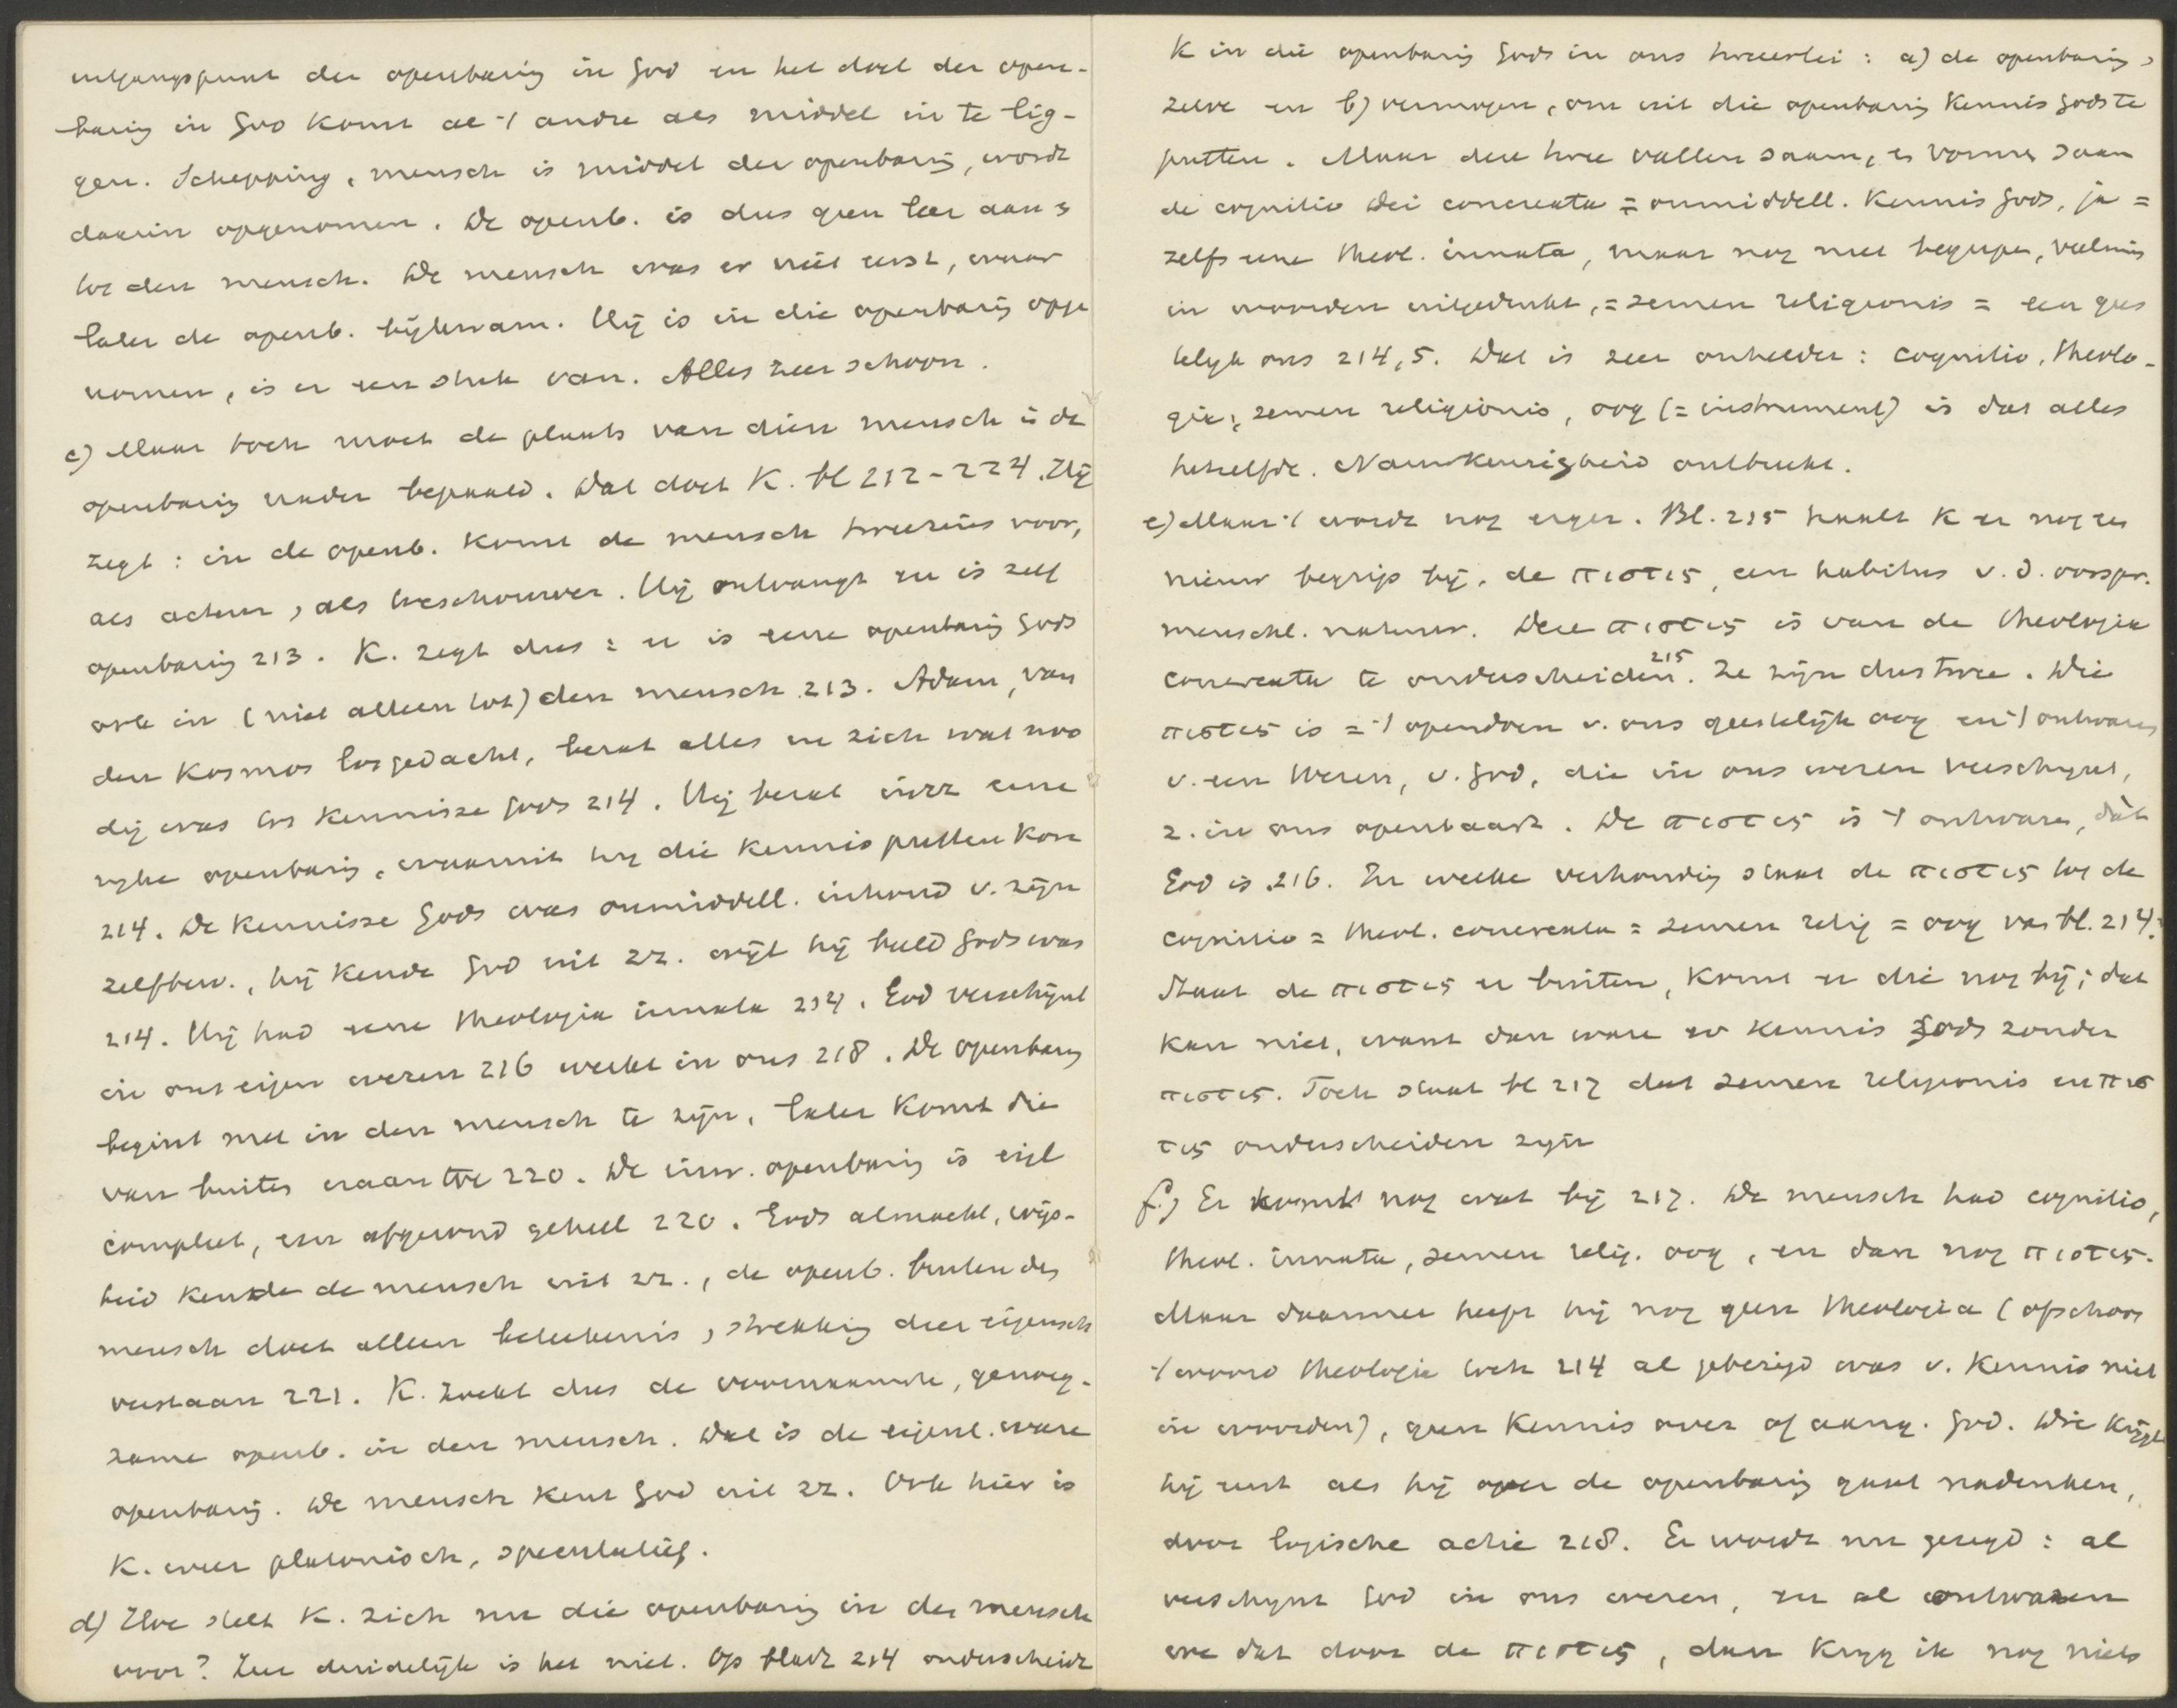 uitgangspunt der openbaring in God en het doel der open-
baring in God komt al 't andre als middel in te lig-
gen. Schepping, mensch is middel der openbaring, wordt
daarin opgenomen. De openb. is dus geen leer aan &
tot den mensch. De mensch was er niet eerst, waar
later de openb. bijkwam. Hij is in die openbaring opge
nomen, is er een stuk van. Alles zeer schoon.
c) Maar toch moet de plaats van dien mensch in de
openbaring nader bepaald. Dat doet K. bl 212-224. Hij
zegt: in de openb. komt de mensch tweezins voor,
als acteur, als toeschouwer. Hij ontvangt en is zelf
openbaring 213. K. zegt dus: er is eene openbaring Gods
ook in (niet alleen tot) den mensch 213. Adam, van
den Kosmos losgedacht, bezat alles in zich wat noo
dig was tot kennisse Gods 214. Hij bezat inw. eene
rijke openbaring, waaruit hij die kennis putten kon
214. De kennisse Gods was onmiddell. inhoud v. zijn
zelfbew., hij kende God uit zz. wijl hij beeld Gods was
214. Hij had eene theologia innata 214. God verschijnt
in ons eigen wezen 216 werkt in ons 218. De openbaring
begint met in den mensch te zijn, later komt die
van buiten eraan toe 220. De inw. openbaring is eigl
compleet, een afgerond geheel 220. Gods almacht, wijs-
heid kende de mensch uit zz., de openb. buiten den
mensch doet alleen beteekenis, strekking dier eigensch
verstaan 221. K. zoekt dus de voornaamste, genoeg-
zame openb. in den mensch. Dat is de eigenl. ware
openbaring. De mensch kent God uit zz. Ook hier is
K. weer platonisch, speculatief.
d) Hoe stelt K. zich nu die openbaring in den mensch
voor? Zeer duidelijk is het niet. Op bladz 214 onderscheidt
K in die openbaring Gods in ons tweeërlei: a) de openbaring,
zelve en b) vermogen, om uit die openbaring kennis Gods te
putten. Maar deze twee vallen saam, en vormen saam
de cognitio Dei concreata = onmiddell. kennis Gods, ja =
zelfs eene theol. innata, maar nog niet begrepen, veelmin
in woorden uitgedrukt, = semen religionis = een gees
telijk oog 214,5. Dat is zeer onhelder: cognitio, theolo-
gie, semen religionis, oog (= instrument) is dat alles
hetzelfde. Nauwkeurigheid ontbreekt.
e) Maar 't wordt nog erger. Bl. 215 haalt K er nog een
nieuw begrip bij, de πιστις, een habitus v. d. oorspr.
menschl. natuur. Deze πιστις is van de theologia
concreata te onderscheiden 215. Ze zijn dus twee. Die
πιστις is = 't opendoen v. ons geestelijk oog en 't ontwaren
v. een Wezen, v. God, die in ons wezen verschijnt,
z. in ons openbaart. De πιστις is 't ontwaren, dàt
God is 216. In welke verhouding staat de πιστις tot de
cognitio = theol. concreata = semen relig = oog van bl. 214?
Staat de πιστις er buiten, komt er die nog bij; dat
kan niet, want dan ware er kennis Gods zonder
πιστις. Toch staat bl 217 dat semen religionis en πισ
τις onderscheiden zijn
f.) Er komt nog wat bij 217. De mensch had cognitio,
theol. innata, semen relig. oog, en dan nog πιστις.
Maar daarmee heeft hij nog geen theologia (ofschoon
't woord theologie toch 214 al gebezigd was v. kennis niet
in woorden), geen kennis over of aang. God. Die krijgt
hij eerst als hij over de openbaring gaat nadenken,
door logische actie 218. Er wordt nu gezegd: al
verschijnt God in ons wezen, en al ontwaren
we dat door de πιστις, dan krijg ik nog niets